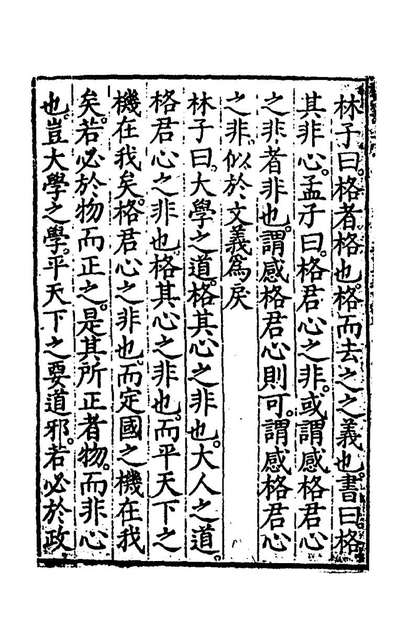 林子曰。格者格也。格而去之之義也。書曰格
其非心。孟子曰。格君心之非。或謂感格君心
之非者非也。謂感格君心則可。謂感格君心
之非。似於文義為戾
林子曰。大學之道。格其心之非也。大人之道。
格君心之非也。格其心之非也。而平天下之
機在我矣。格君心之非也。而定國之機在我
矣。若必於物而正之。是其所正者物。而非心
也。豈大學之學。平天下之要道邪。若必於政